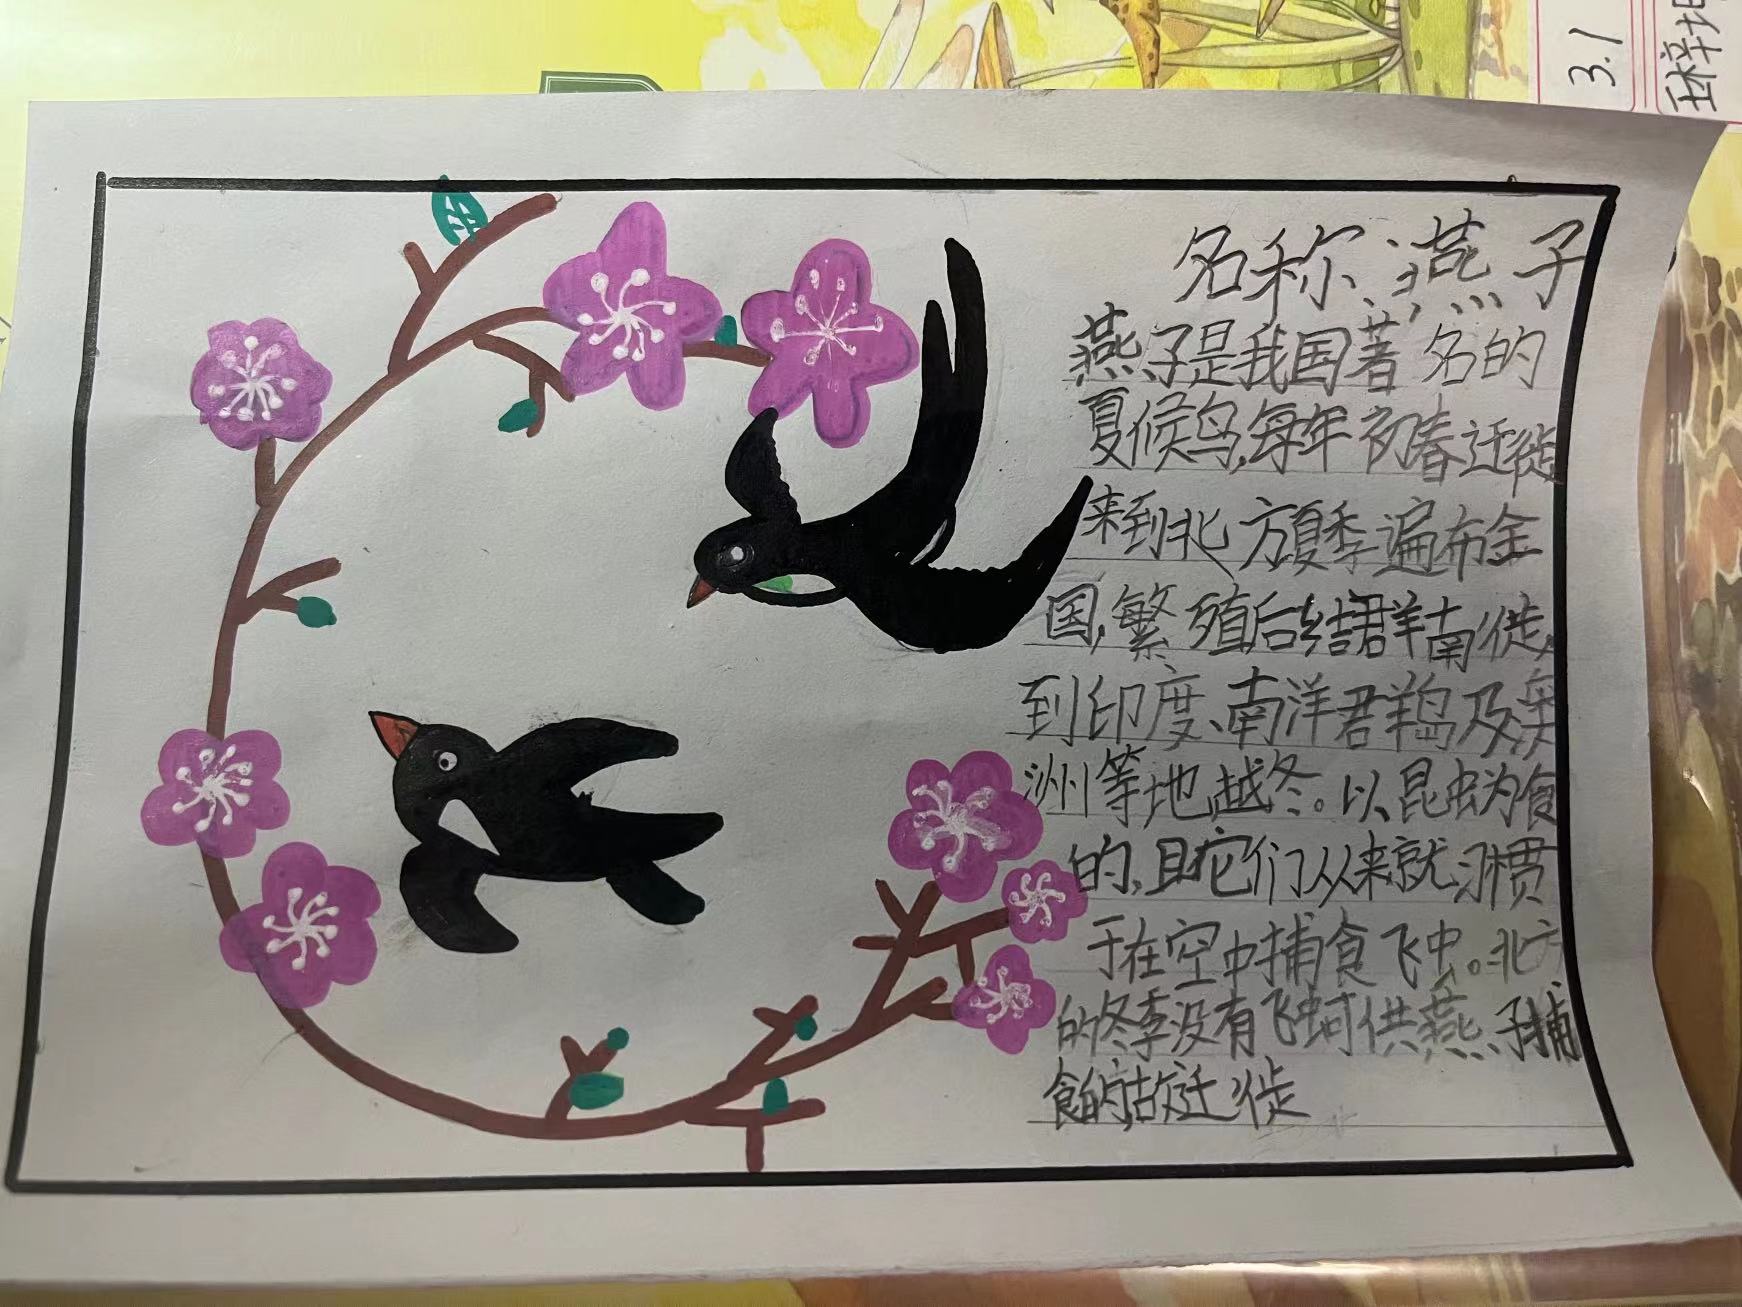 3.1
名称:燕子
燕子是我国著名的
夏候鸟,每年初春迁徙
来到北方夏季遍布全
国,繁殖后结群南徙,
到印度、南洋群岛及澳
洲等地越冬。以昆虫为食
的,且它们从来就习惯
于在空中捕食飞虫。北方
的冬季没有飞虫可供燕子捕
食的,故迁徙